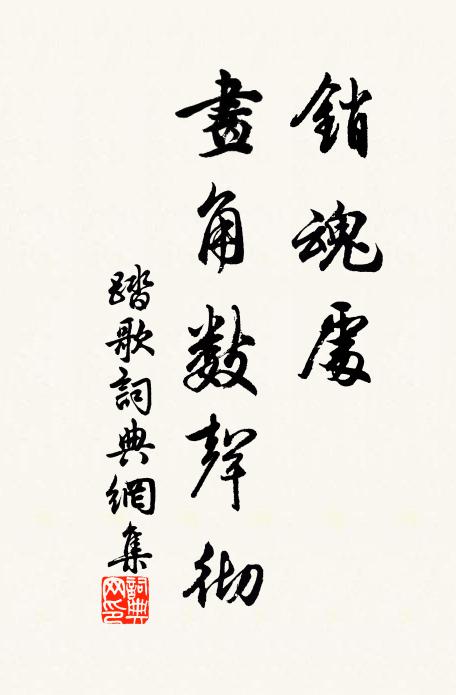 銷魂處
畫角數聲徹
踏歌詞典網集
詞典
网印